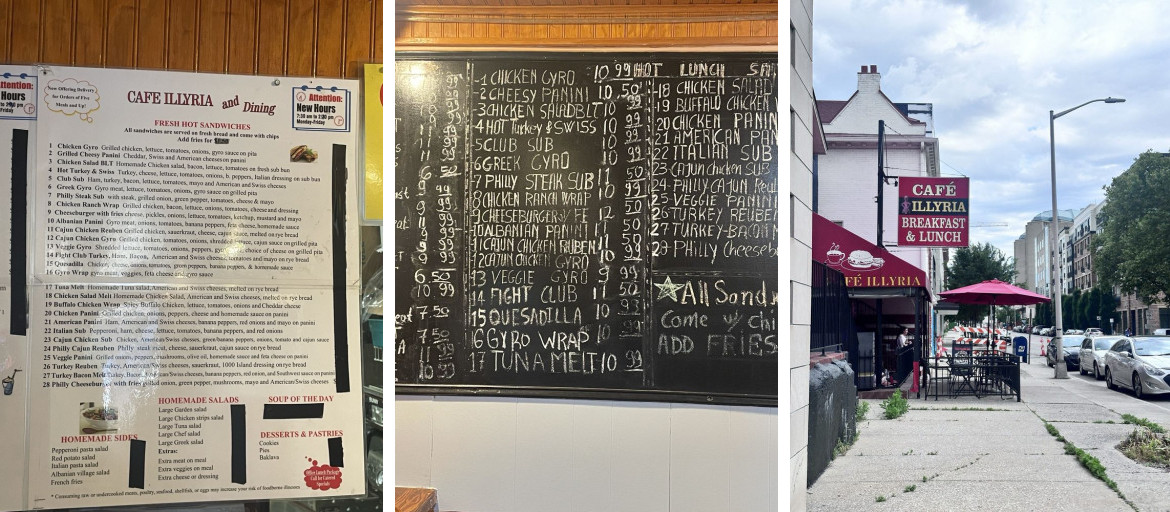 Attention:
Hours
Friday
Now Offering Delivery
for Orders of Five
Meals and Up!
CAFE ILLYRIA and Dining
Attention:
New Hours
7:30 am to 2:30 pm
Monday-Friday
FRESH HOT SANDWICHES
All sandwiches are served on fresh bread and come with chips
Add fries for
1 Chicken Gyro Grilled chicken, lettuce, tomatoes, onions, gyro sauce on pita
2 Grilled Cheesy Panini Cheddar, Swiss and American cheeses on panini
3 Chicken Salad BLT Homemade Chicken salad, bacon, lettuce, tomatoes on fresh sub bun
4 Hot Turkey & Swiss Turkey, cheese, lettuce, tomatoes, onions, h. peppers, Italian dressing on sub bun
5 Club Sub Ham, turkey, bacon, lettuce, tomatoes, mayo and American and Swiss cheeses
6 Greek Gyro Gyro meat, lettuce, tomatoes, onions, gyro sauce on grilled pita
7 Philly Steak Sub with steak, grilled onion, green pepper, tomatoes, cheese & mayo
8 Chicken Ranch Wrap Grilled chicken, lettuce, onions, tomatoes, cheese and dressing
9 Cheeseburger with fries cheese, pickles, onions, lettuce, tomatoes, ketchup, mustard and mayo
10 Albanian Panini Gyro meat, onions, tomatoes, banana peppers, feta cheese, homemade sauce
11 Cajun Chicken Reuben Grilled chicken, sauerkraut, cheese, cajun sauce, melted on rye bread
12 Cajun Chicken Gyro Grilled chicken, tomatoes, onions, shredded lettuce, cajun sauce on grilled pita
13 Veggie Gyro Shredded lettuce, choice of cheese on grilled pita
14 Fight Club Turkey, Ham, Bacon, American and Swiss cheeses, tomatoes and mayo on rye bread
15 Quesadilla Chicken, cheese, onions, tomatoes, green peppers, banana peppers, & homemade sauce
16 Gyro Wrap gyro meat, veggies, feta cheese and gyro sauce
17 Tuna Melt Homemade Tuna salad, American and Swiss cheeses, melted on rye bread
18 Chicken Salad Melt Homemade Chicken Salad, American and Swiss cheeses, melted on rye bread
19 Buffalo Chicken Wrap Spicy Buffalo Chicken, lettuce, tomatoes, onions and Cheddar cheese
20 Chicken Panini Grilled chicken, onions, peppers, cheese and homemade sauce on panini
21 American Panini Ham, American and Swiss cheeses, banana peppers, red onions and mayo on panini
22 Italian Sub Pepperoni, ham, cheese, lettuce, tomatoes, banana peppers, and red onions
23 Cajun Chicken Sub Chicken, American/Swiss cheeses, green/banana peppers, onions, tomato and cajun sauce
24 Philly Cajun Reuben Philly steak meat, cheese, sauerkraut, cajun sauce, melted on rye bread
25 Veggie Panini Grilled onions, peppers, mushrooms, olive oil, homemade sauce and feta cheese on panini
26 Turkey Reuben Turkey, American/Swiss cheeses, sauerkraut, 1000 Island dressing on rye bread
27 Turkey Bacon Melt Turkey, Bacon, American/Swiss cheeses, banana peppers, red onion, and Southwest sauce on panini
28 Philly Cheeseburger with fries grilled onion, green pepper, mushrooms, mayo and American/Swiss cheeses
HOMEMADE SIDES
Pepperoni pasta salad
Red potato salad
Italian pasta salad
Albanian village salad
French fries
HOMEMADE SALADS
Large Garden salad
Large Chicken strips salad
Large Tuna salad
Large Chef salad
Large Greek salad
Extras:
Extra meat on meal
Extra veggies on meal
Extra cheese or dressing
SOUP OF THE DAY
DESSERTS & PASTRIES
Cookies
Pies
Baklava
Office Lunch Packages
Call for Catered
Specials
* Consuming raw or undercooked meats, poultry, seafood, shellfish, or eggs may increase your risk of foodborne illnesses
-1 CHICKEN GYRO 10 99
-2 CHEESY PANINI 10.50
-3 CHICKEN SALAD BLT 10 99
4 HOT Turkey & SWISS 10 99
5 CLUB SUB 11 50
6 GREEK GYRO 10 99
7 PHILLY STEAK SUB 11 50
8 CHICKEN RANCH WRAP 10 99
9 CHEESEBURGER W/ FF 12 50
10 ALBANIAN PANINI 11 50
11 CAJUN CHICKEN RUBEN 11 50
12 CAJUN CHICKEN GYRO 10 99
13 VEGGIE GYRO 9 99
14 FIGHT CLUB 11 50
15 QUESADILLA 10 99
16 GYRO WRAP 10 99
17 TUNA MELT 10 99
HOT LUNCH SAN
-18 CHICKEN SALAD
19 BUFFALO CHICKEN W
20 CHICKEN PANIN
21 AMERICAN PAN
22 ITALIAN SUB
23 CAJUN chicken SUB
24 PHILLY CAJUN Reub
25 VEGGIE PANIN
26 TURKEY REUBEN
27 TURKEY-BACON M
28 PHILLY Cheeseb
All Sandw
Come w/ Chi
ADD FRIES
CAFÉ
ILLYRIA
BREAKFAST
& LUNCH
CAFÉ ILLYRIA